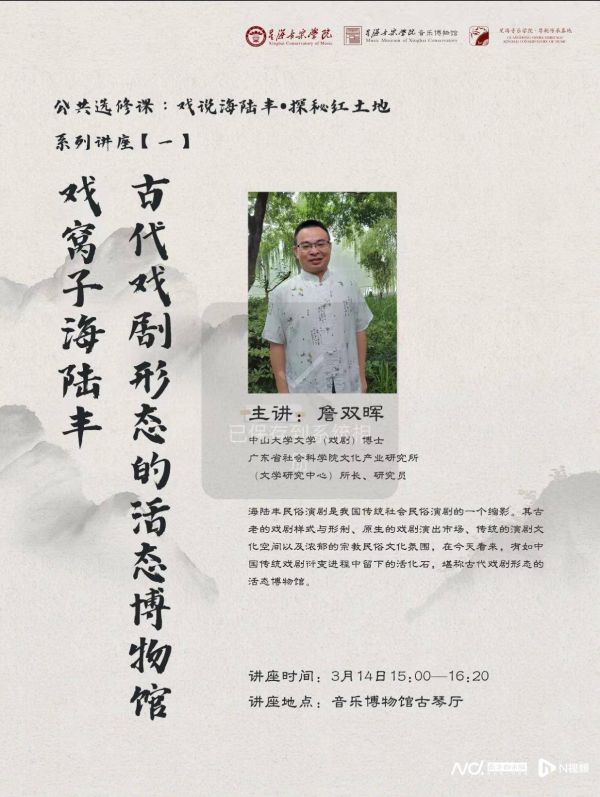 星海音乐学院
Xinghai Conservatory of Music
星海音乐学院音乐博物馆
Music Museum of Xinghai Conservatory
公共选修课：戏说海陆丰•探秘红土地
系列讲座【一】
戏窝子海陆丰
古代戏剧形态的活态博物馆
主讲：詹双晖
已保存到系统相
中山大学文学（戏剧）博士
广东省社会科学院文化产业研究所
（文学研究中心）所长、研究员
海陆丰民俗演剧是我国传统社会民俗演剧的一个缩影。其古
老的戏剧样式与形制、原生的戏剧演出市场、传统的演剧文
化空间以及浓郁的宗教民俗文化氛围，在今天看来，有如中
国传统戏剧衍变进程中留下的活化石，堪称古代戏剧形态的
活态博物馆。
讲座时间：3月14日15:00—16:20
讲座地点：音乐博物馆古琴厅
N视频